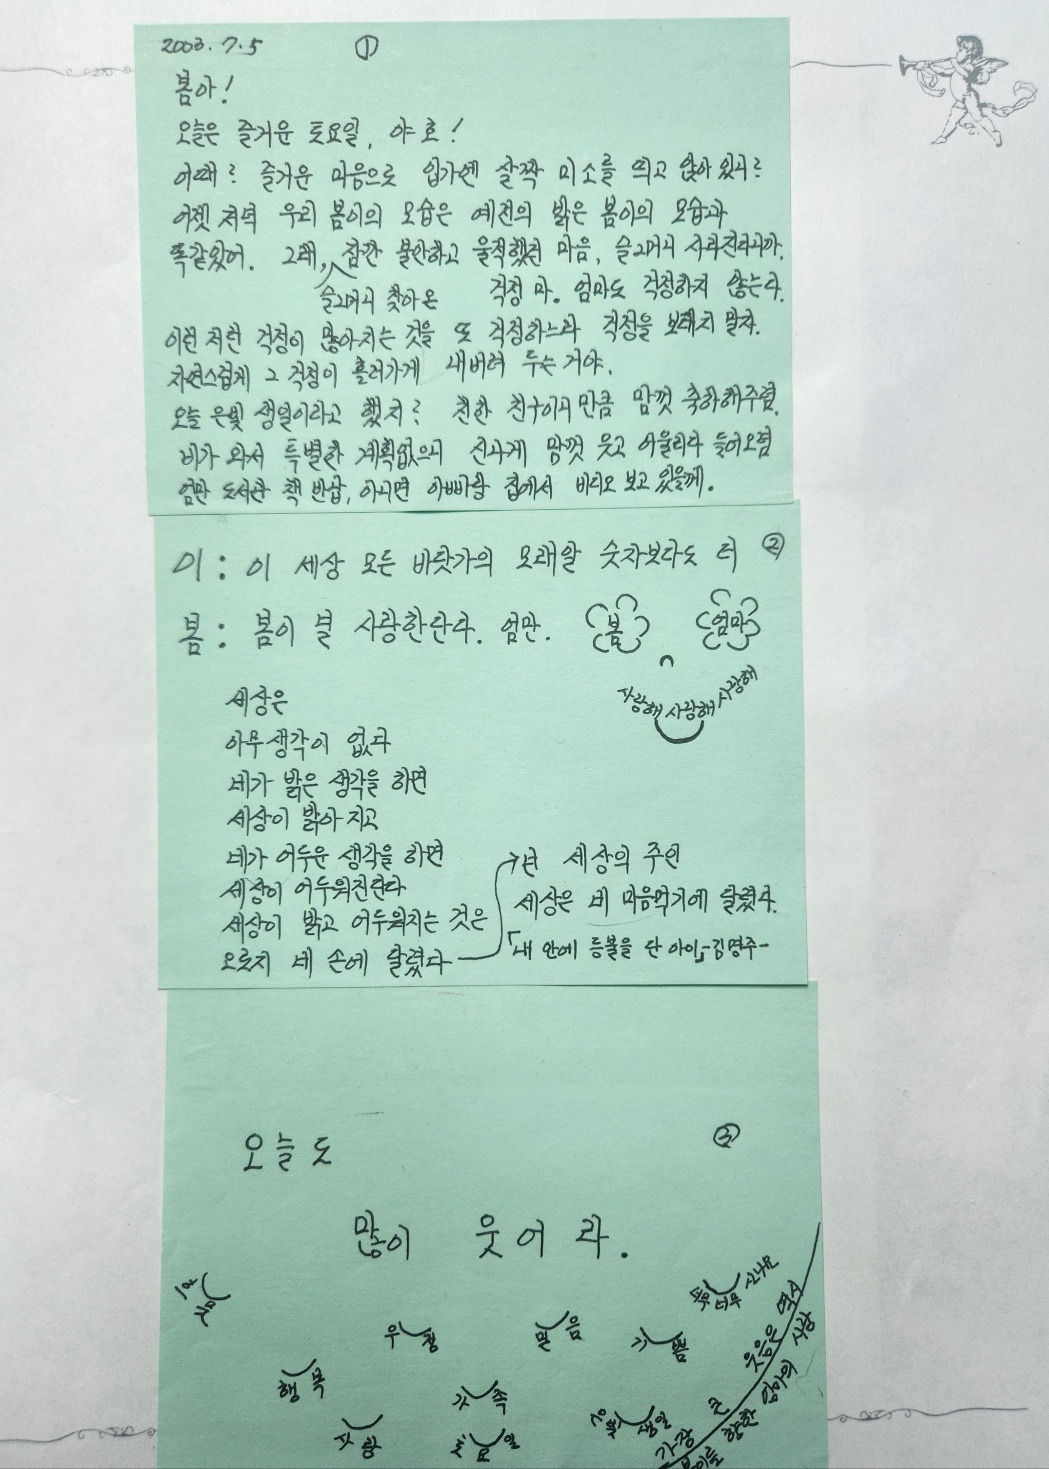 2003. 7. 5 ①
봄아!
오늘은 즐거운 토요일, 야호!
어때? 즐거운 마음으로 입가엔 살짝 미소를 띄고 앉아 있지?
어젯 저녁 우리 봄이의 모습은 예전의 밝은 봄이의 모습과
똑같았어. 그래, 잠깐 불안하고 울적했던 마음, 슬그머니 사라진다니까.
슬그머니 찾아온 걱정 마. 엄마도 걱정하지 않는다.
이런 저런 걱정이 많아지는 것을 또 걱정하느라 걱정을 보태지 말자.
자연스럽게 그 걱정이 흘러가게 내버려 두는 거야.
오늘 은빛 생일이라고 했지? 친한 친구이니 만큼 맘껏 축하해주렴.
비가 와서 특별한 계획없으니 신나게 맘껏 웃고 어울리다 들어오렴
엄만 도서관 책 반납, 아니면 아빠랑 집에서 비디오 보고 있을께.
이 : 이 세상 모든 바닷가의 모래알 숫자보다도 더 ②
봄 : 봄이 널 사랑한단다. 엄만. 봄 엄마
사랑해 사랑해 사랑해
세상은
아무 생각이 없다
네가 밝은 생각을 하면
세상이 밝아지고
네가 어두운 생각을 하면
세상이 어두워진단다
세상이 밝고 어두워지는 것은
오로지 네 손에 달렸다
넌 세상의 주인
세상은 네 마음먹기에 달렸다.
「내 안에 등불을 단 아이」-김명주-
오늘도 ③
많이 웃어라.
너무 너무 신나요
웃음
우정
믿음
기쁨
행복
가족
사랑
토요일
생일
가장 큰 웃음은 역시
봄이를 향한 엄마의 사랑